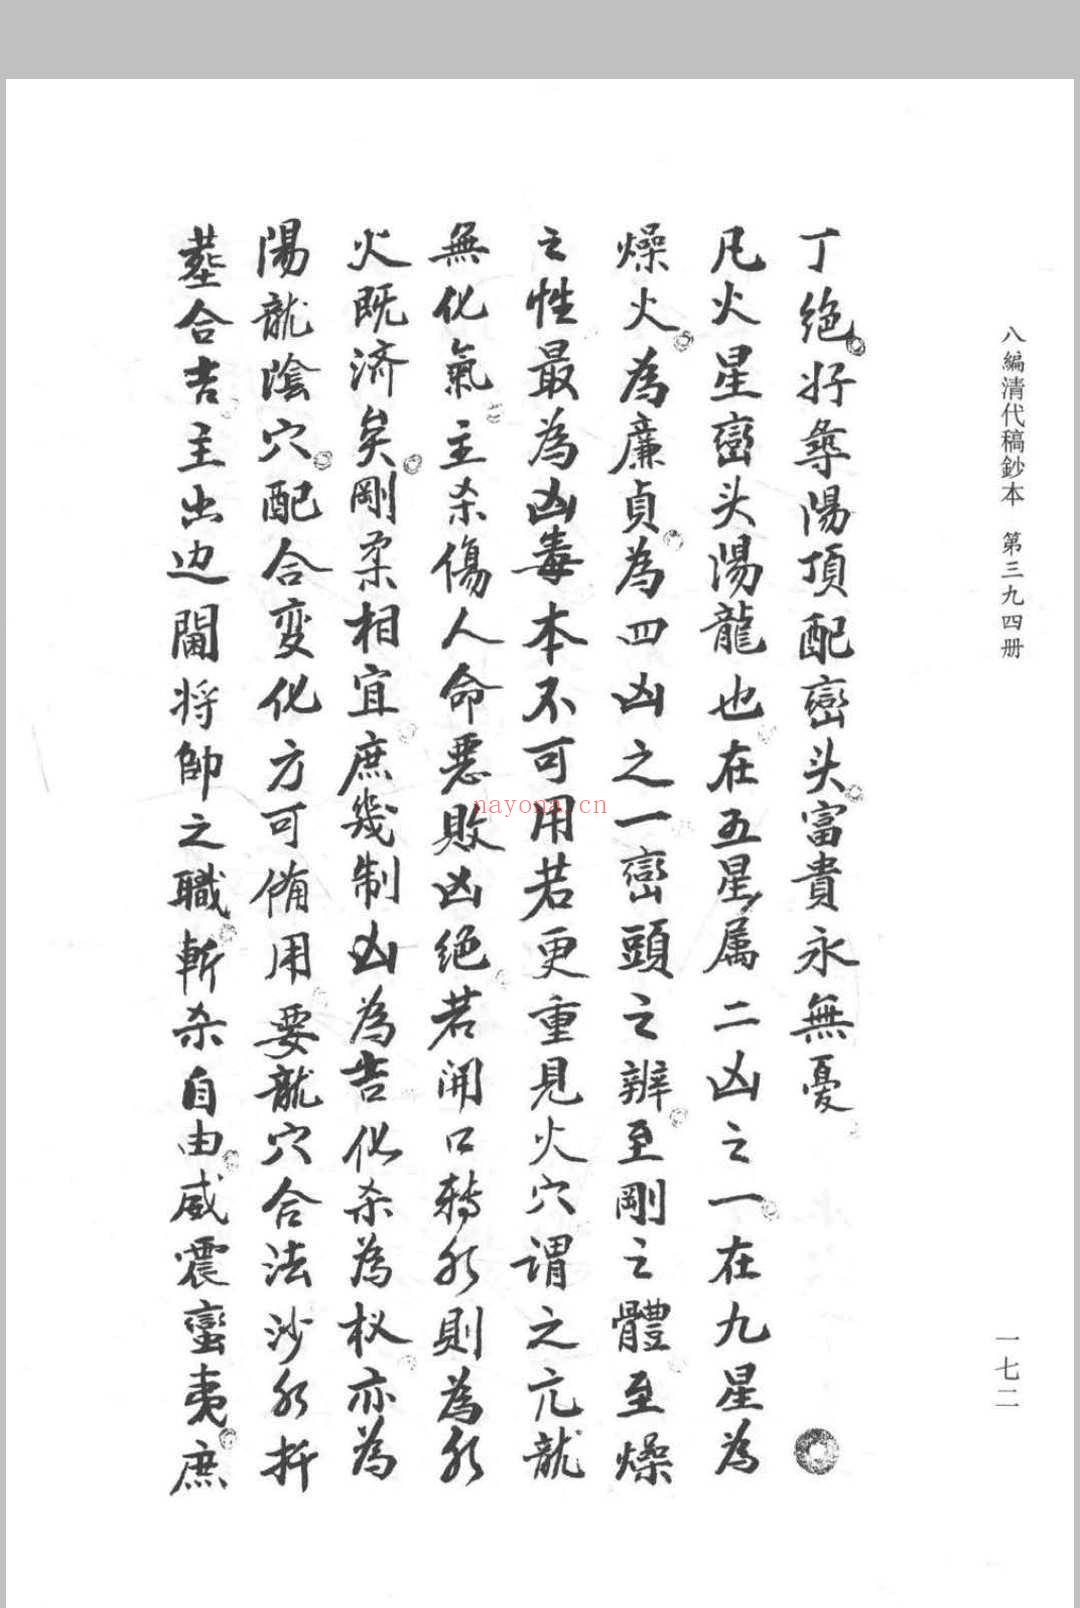 八編清代稿鈔本　第三九四册
一七二
丁绝好尋陽頂配巒头富貴永無憂
凡火星巒头陽龍也在五星属二凶之一在九星為
燥火為廉貞為四凶之一巒頭之辨至剛之體至燥
之性最為凶毒本不可用若更重見火穴謂之亢龍
無化氣主杀傷人命惡敗凶绝若開口轉水則為水
火既济矣剛柔相宜庶幾制凶為吉化杀為权亦為
陽龍陰穴配合变化方可脩用要龍穴合法沙水折
塟合吉主出边閫将帥之職斬杀自由威震蛮夷庶
nayona.cn